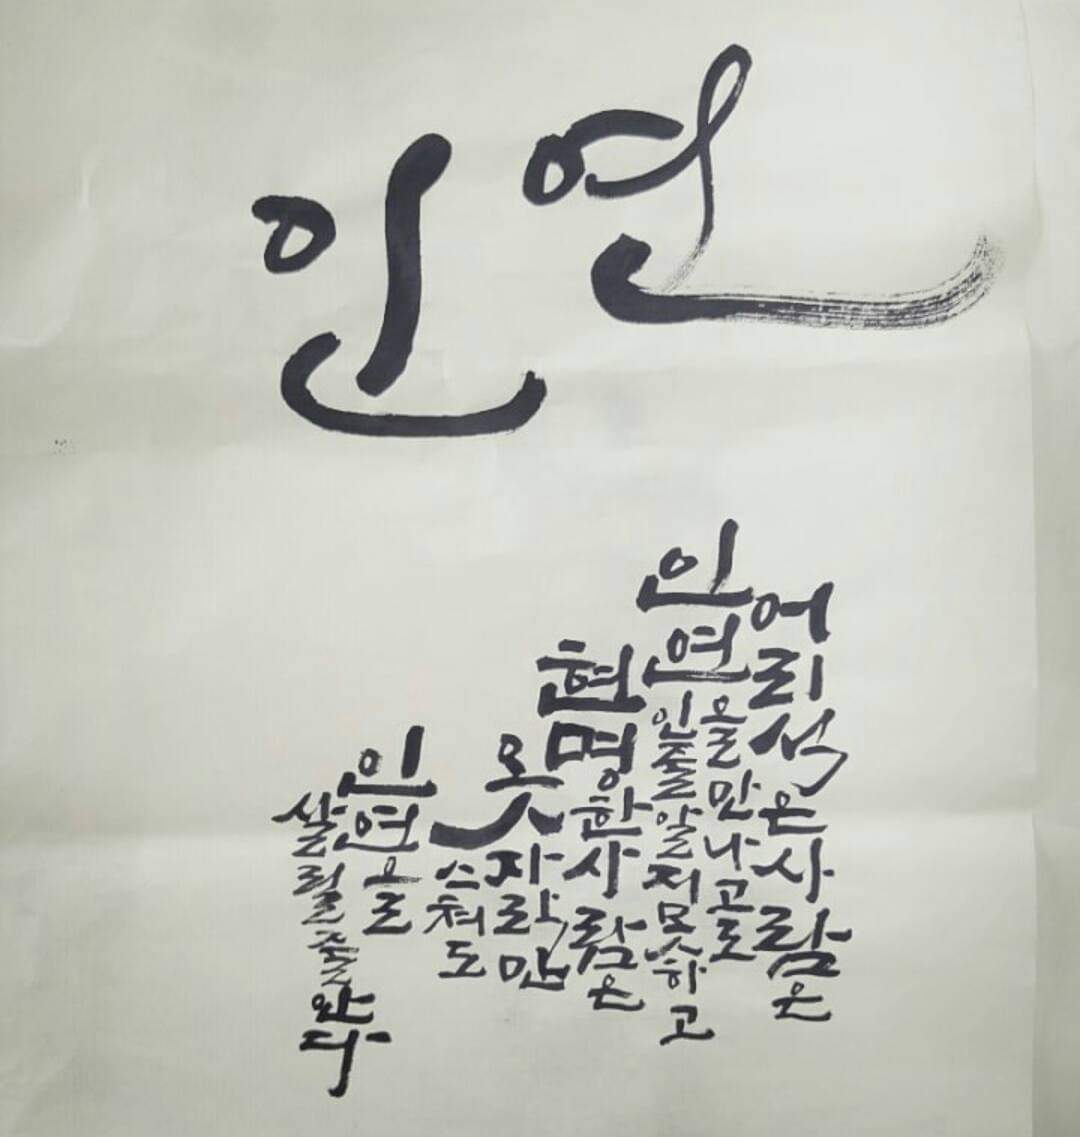 인연
어리석은사람은
인연을만나고도
인줄알지못하고
현명한사람은
옷자락만
스쳐도
인연을
살릴줄안다